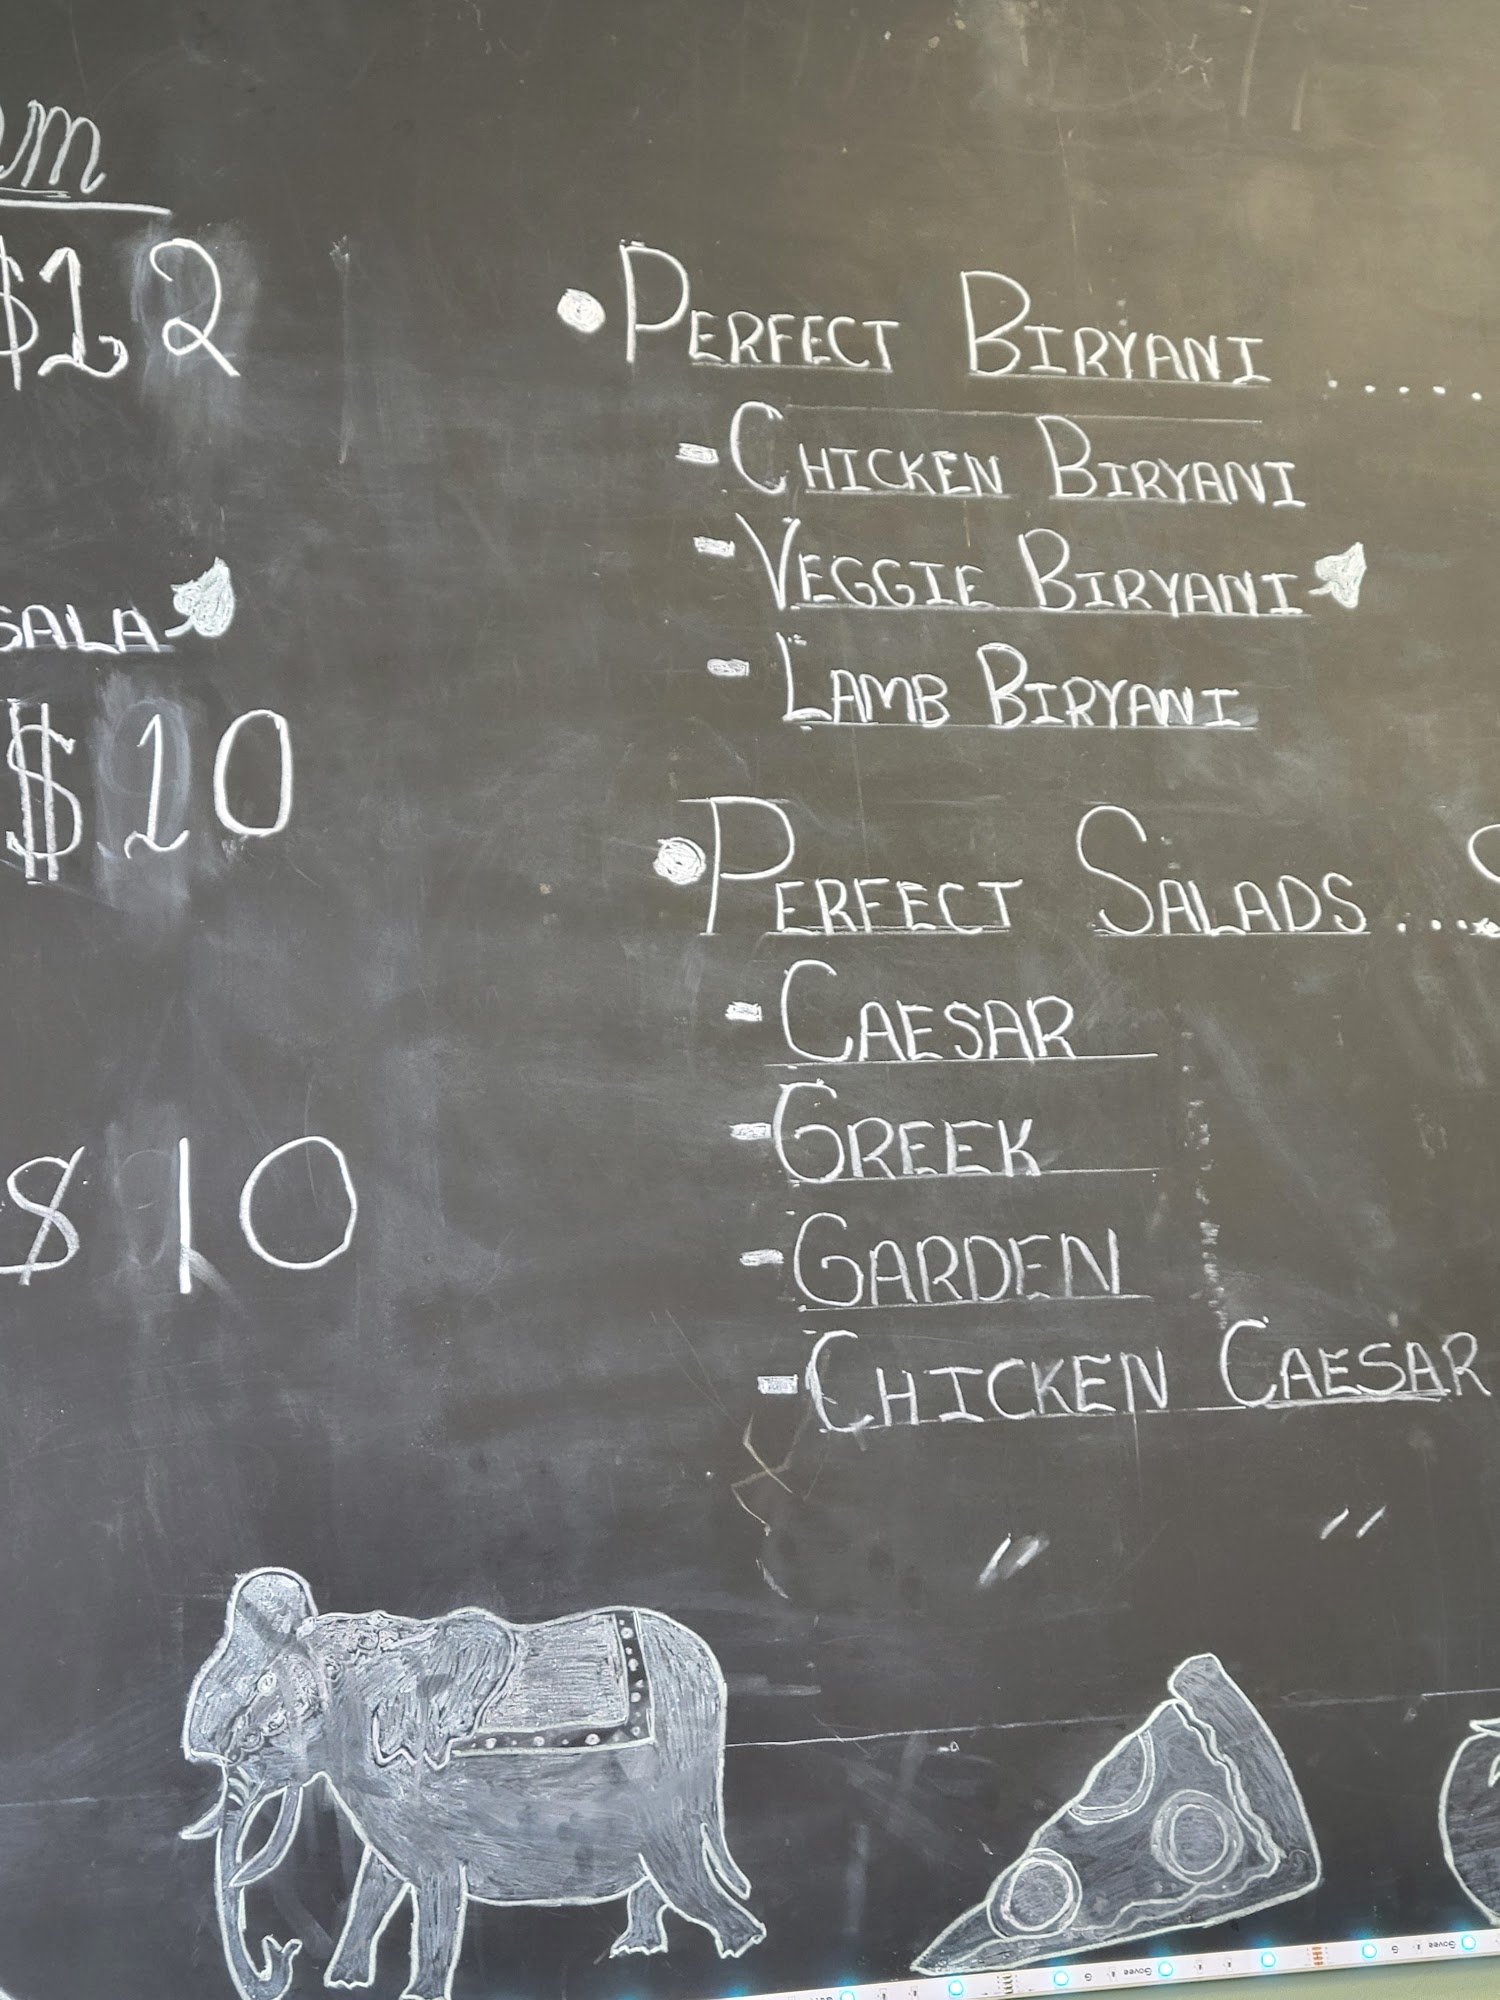 $12
SALA
$10
$10
• PERFECT BIRYANI .....
- CHICKEN BIRYANI
- VEGGIE BIRYANI
- LAMB BIRYANI
• PERFECT SALADS ....
- CAESAR
- GREEK
- GARDEN
- CHICKEN CAESAR
Govee
Govee